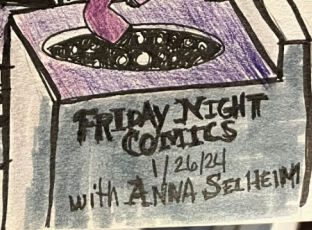 FRIDAY NIGHT
COMICS
1/26/24
with ANNA SELHEIM